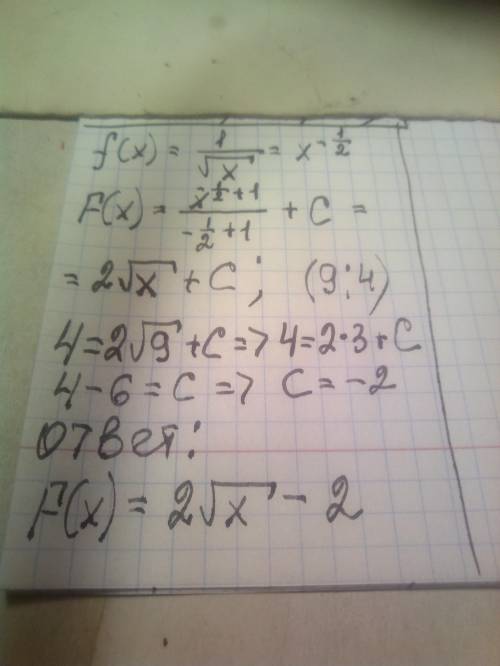 f(x) = 1/√x = x^(-1/2)
F(x) = x^(-1/2+1)/(-1/2+1) + C =
= 2√x + C; (9;4)
4=2√9+C=>4=2·3+C
4-6=C=> C=-2
ответ:
F(x)=2√x-2